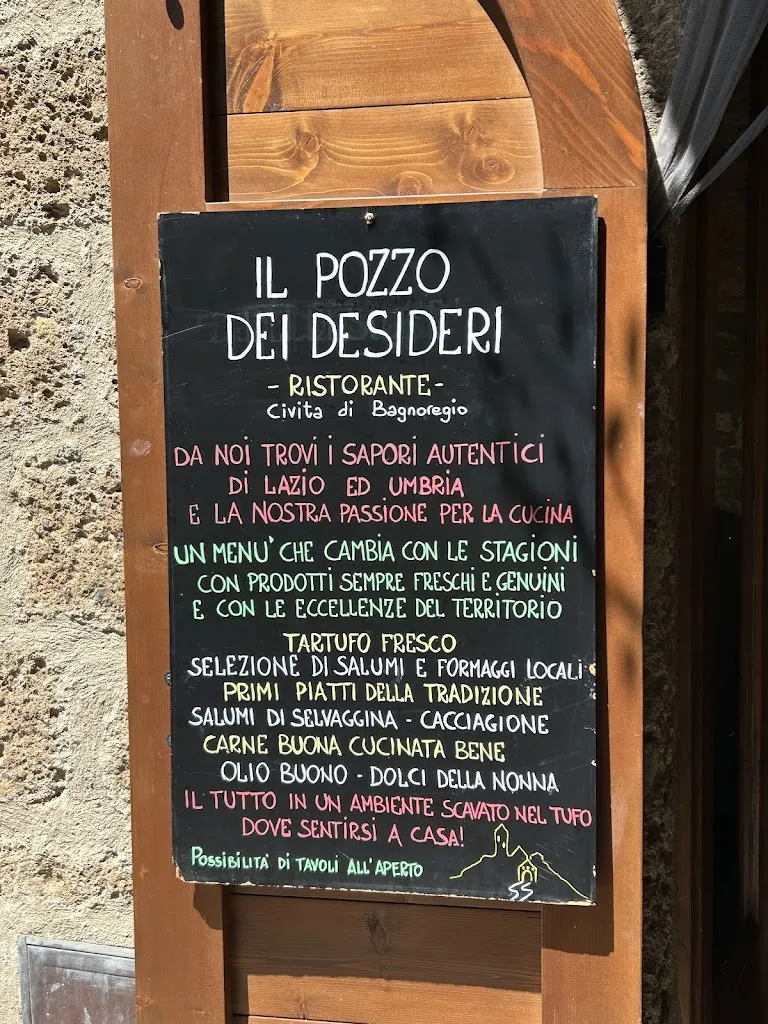 IL POZZO
DEI DESIDERI
- RISTORANTE -
Civita di Bagnoregio
DA NOI TROVI I SAPORI AUTENTICI
DI LAZIO ED UMBRIA
E LA NOSTRA PASSIONE PER LA CUCINA
UN MENU' CHE CAMBIA CON LE STAGIONI
CON PRODOTTI SEMPRE FRESCHI E GENUINI
E CON LE ECCELLENZE DEL TERRITORIO
TARTUFO FRESCO
SELEZIONE DI SALUMI E FORMAGGI LOCALI
PRIMI PIATTI DELLA TRADIZIONE
SALUMI DI SELVAGGINA - CACCIAGIONE
CARNE BUONA CUCINATA BENE
OLIO BUONO - DOLCI DELLA NONNA
IL TUTTO IN UN AMBIENTE SCAVATO NEL TUFO
DOVE SENTIRSI A CASA!
POSSIBILITA' DI TAVOLI ALL'APERTO
SS